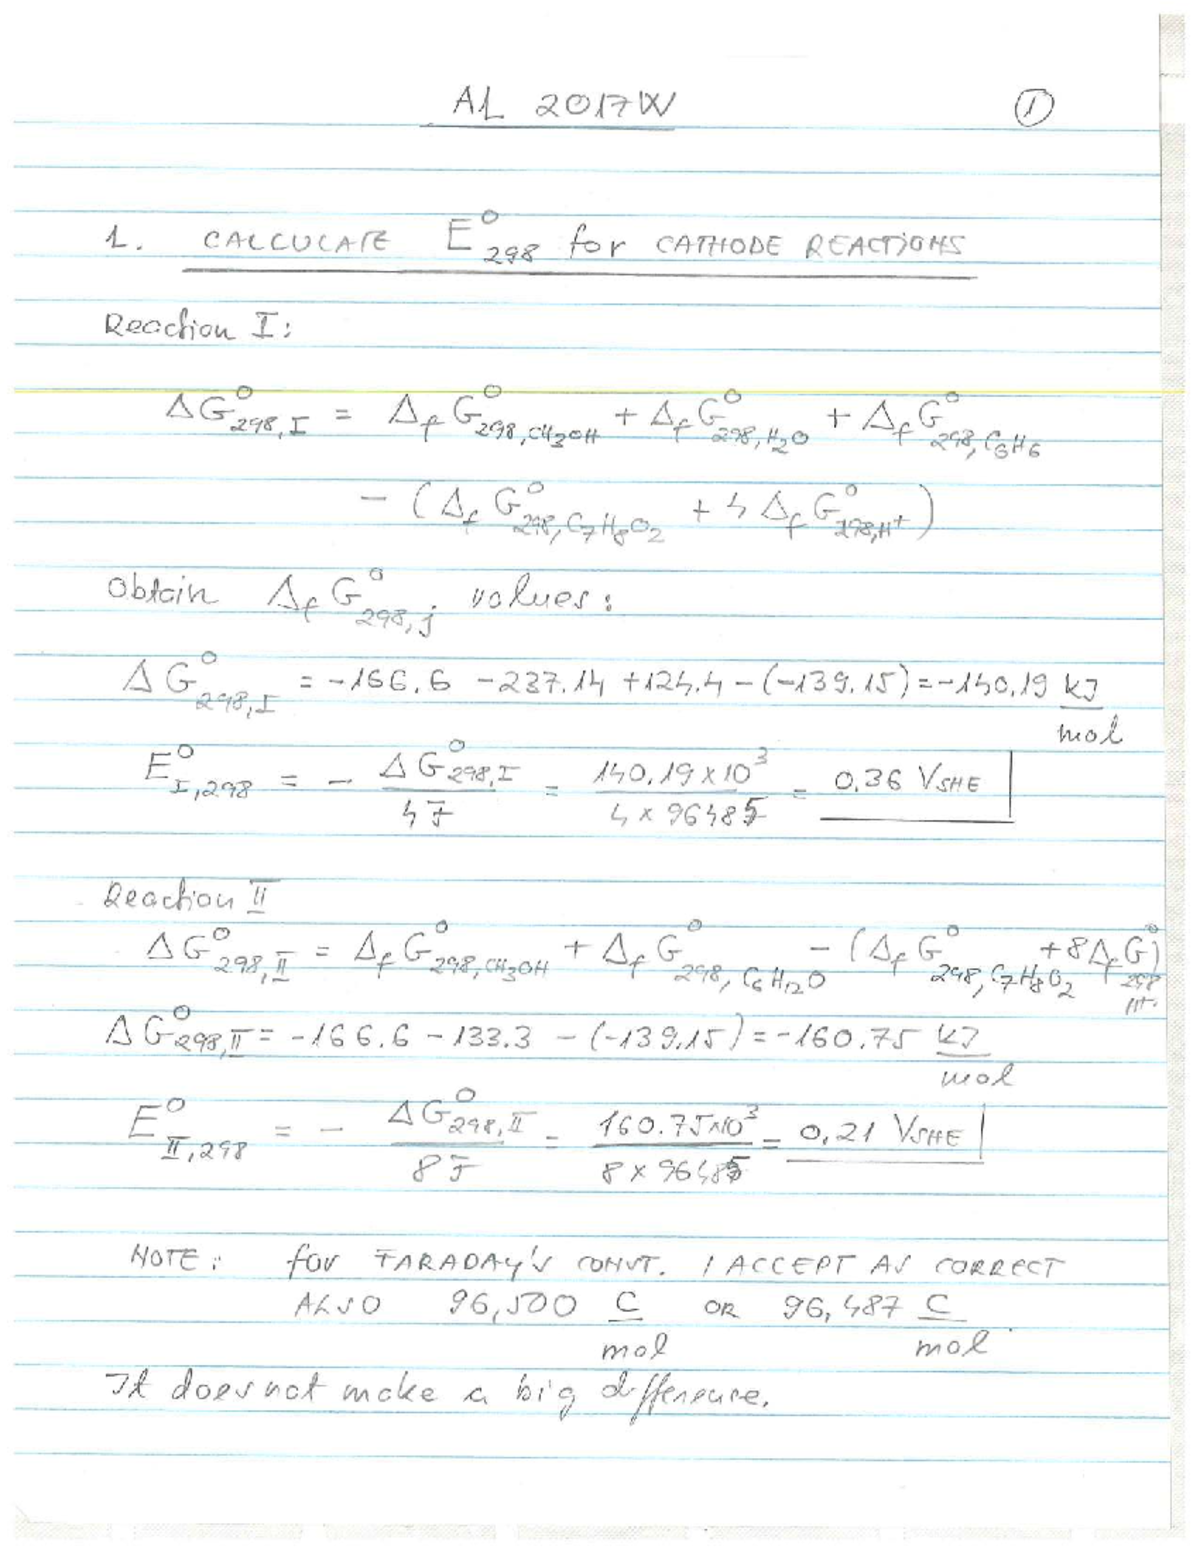 AL 2017W ①
1. CALCULATE E°298 for CATHODE REACTIONS
Reaction I:
ΔG°298,I = ΔfG°298,CH3OH + ΔfG°298,H2O + ΔfG°298,C6H6
- (ΔfG°298,C7H8O2 + 4ΔfG°298,H+)
Obtain ΔfG°298,j values:
ΔG°298,I = -166.6 -237.14 +124.4 -(-139.15) = -140.19 kJ/mol
E°I,298 = - ΔG°298,I/4F = 140.19×10³/4×96485 = 0.36 VSHE
Reaction II
ΔG°298,II = ΔfG°298,CH3OH + ΔfG°298,C6H12O - (ΔfG°298,C7H8O2 + 8ΔfG°298 H+)
ΔG°298,II = -166.6 -133.3 - (-139.15) = -160.75 kJ/mol
E°II,298 = - ΔG°298,II/8F = 160.75×10³/8×96485 = 0.21 VSHE
NOTE: for FARADAY'S CONST. I ACCEPT AS CORRECT
ALSO 96,500 C/mol OR 96,487 C/mol.
It does not make a big difference.